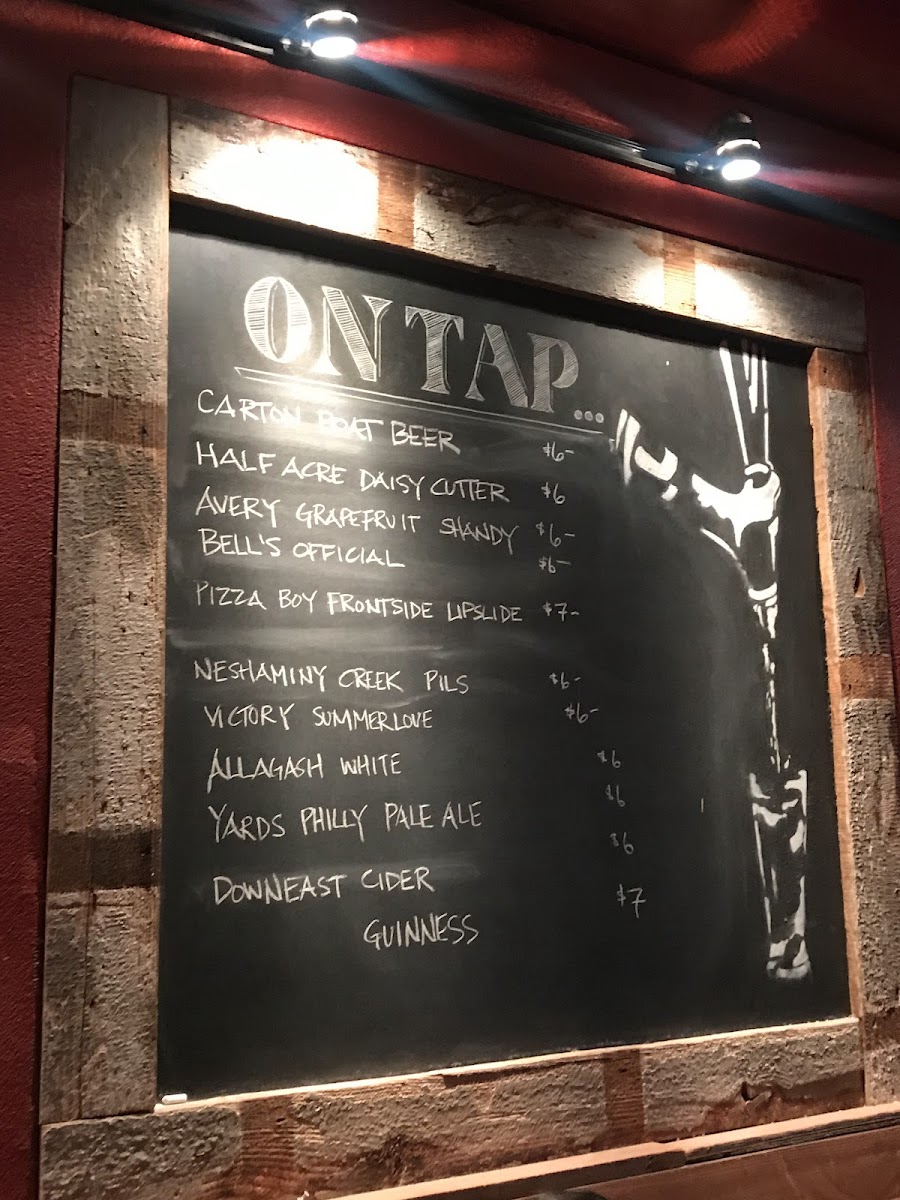 ON TAP...
CARTON BOAT BEER $6-
HALF ACRE DAISY CUTTER $6
AVERY GRAPEFRUIT SHANDY $6-
BELL'S OFFICIAL $6-
PIZZA BOY FRONTSIDE LIPSLIDE $7-
NESHAMINY CREEK PILS $6-
VICTORY SUMMERLOVE $6-
ALLAGASH WHITE $6
YARDS PHILLY PALE ALE $6
$6
DOWNEAST CIDER $7
GUINNESS